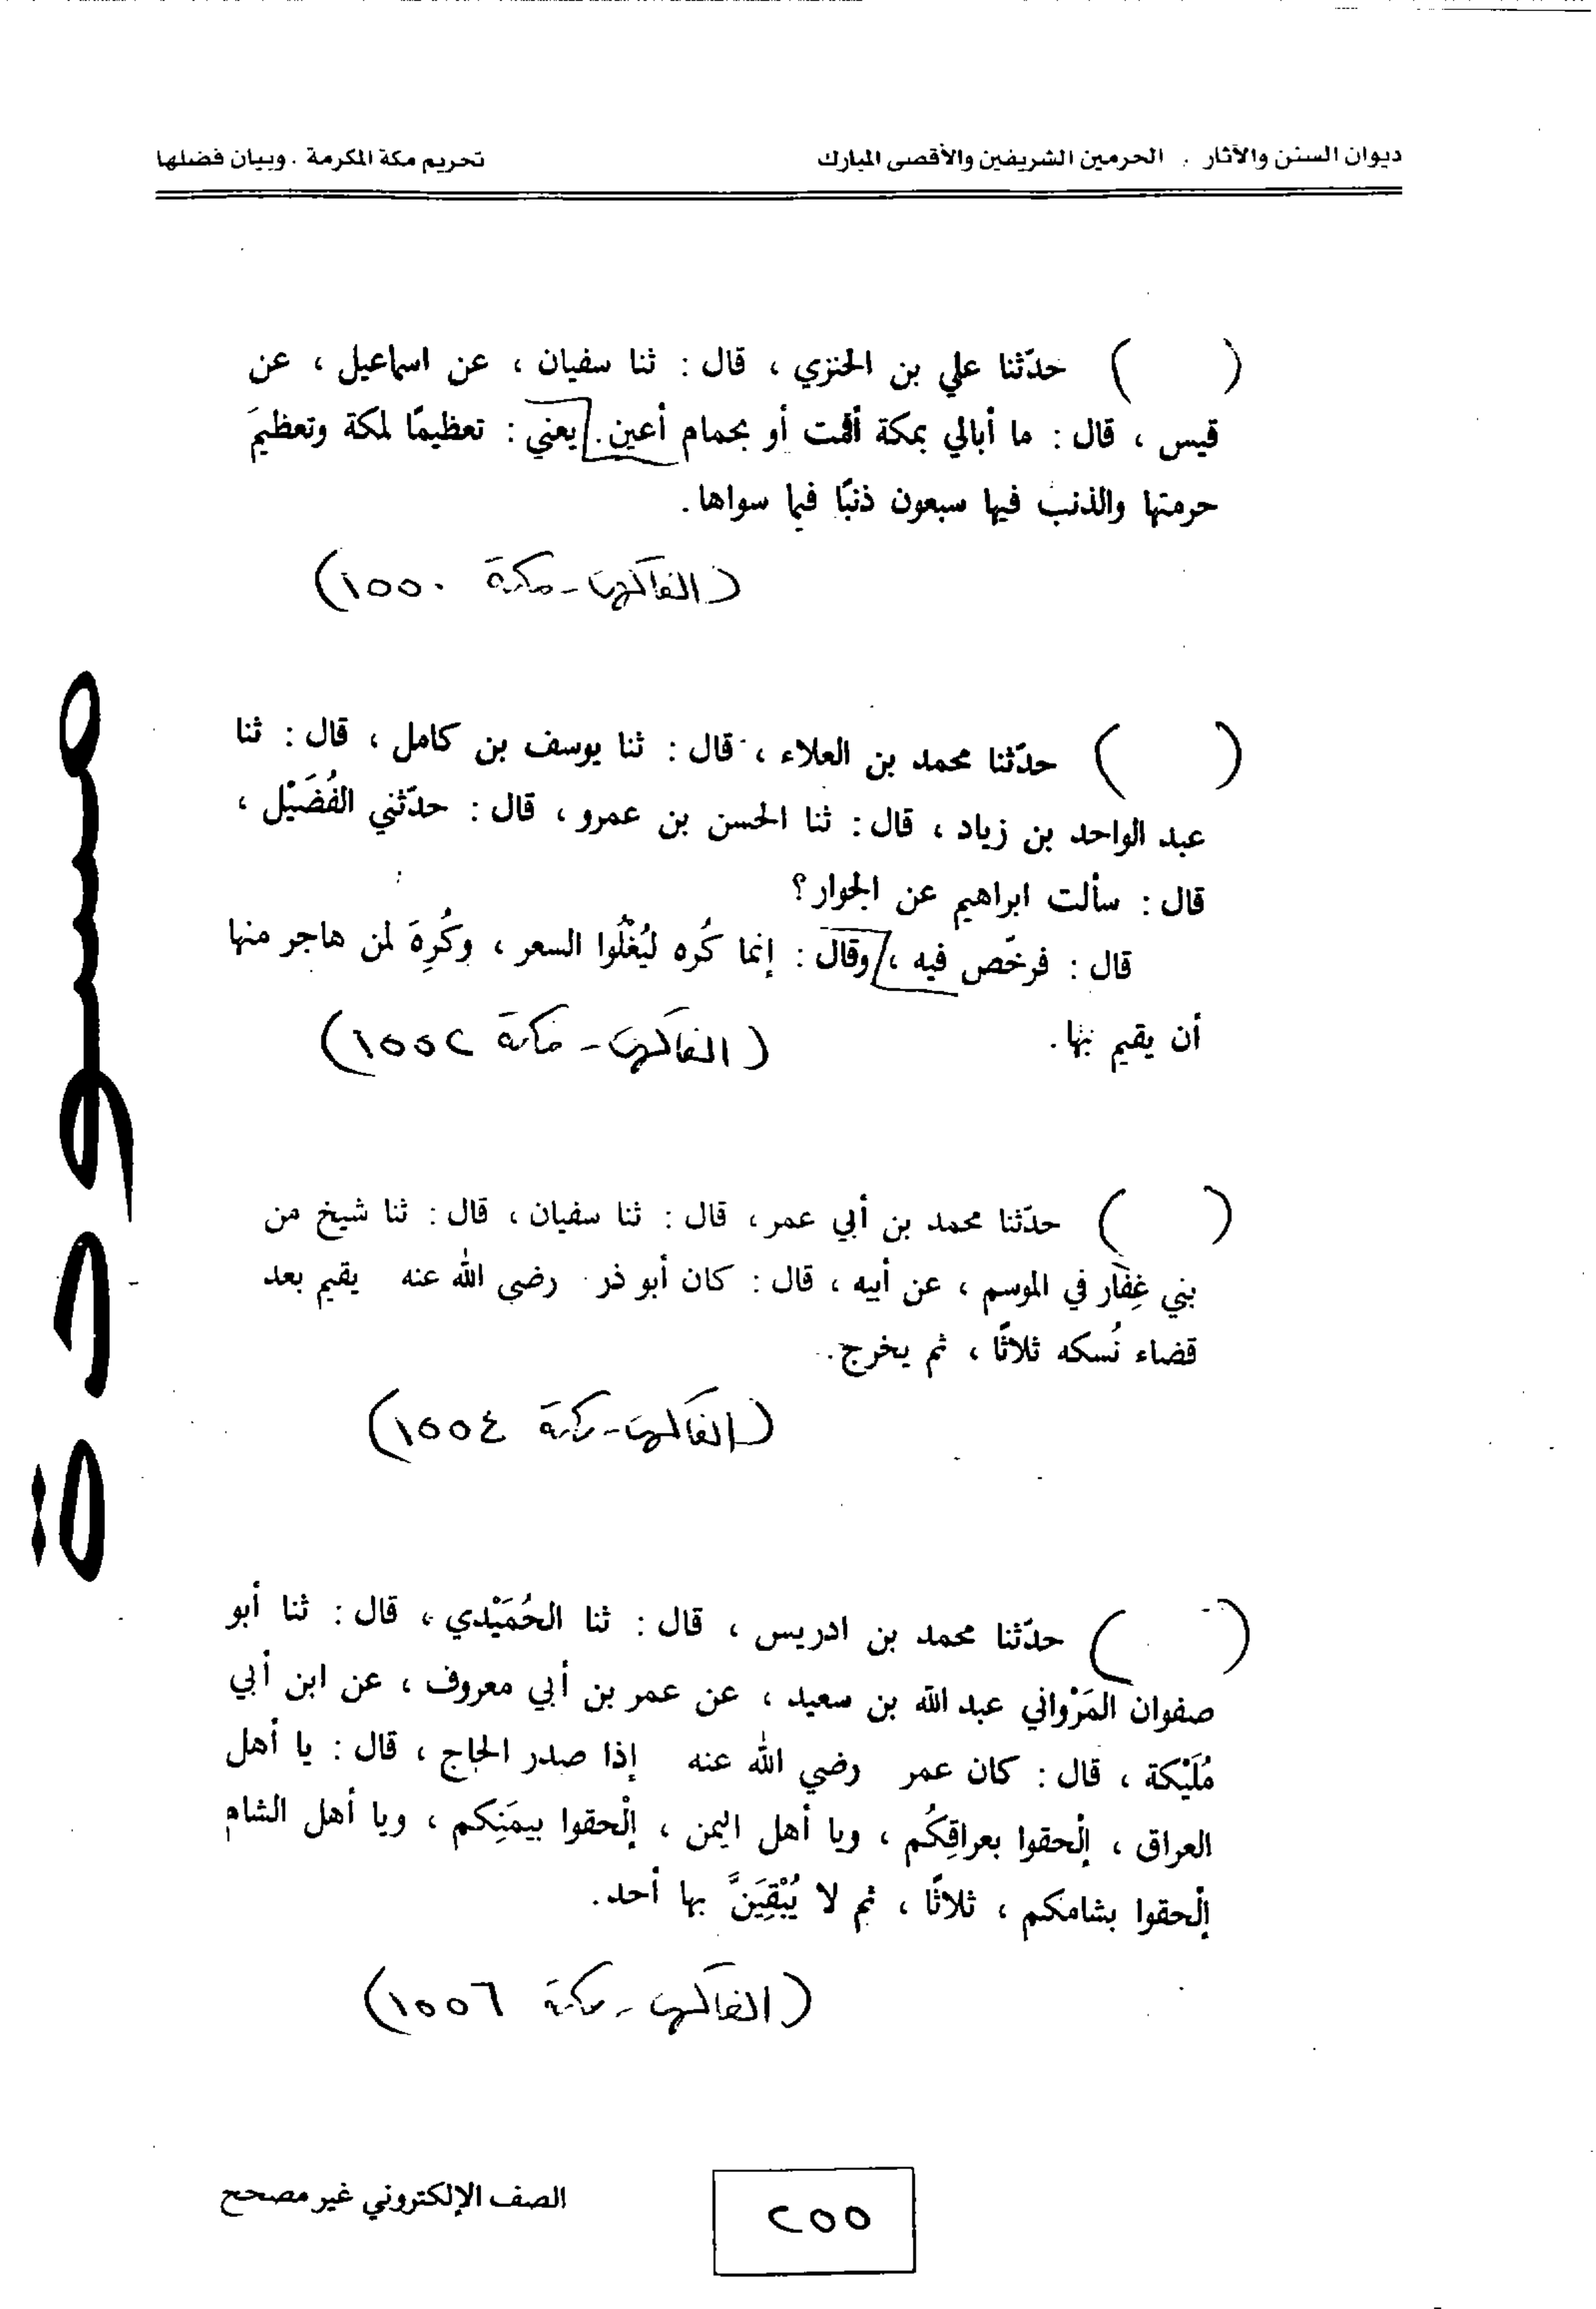 ديوان السنن والآثار . الحرمين الشريفين والأقصى المبارك
تحريم مكة المكرمة . وبيان فضلها
( ) حدّثنا علي بن الخنزي ، قال : ثنا سفيان ، عن اسماعيل ، عن
قيس ، قال : ما أبالي بمكة أقمت أو بحمام أعين. يعني : تعظيمًا لمكة وتعظيمَ
حرمتها والذنب فيها سبعون ذنبًا فيما سواها.
(الفاكهي - مكة ١٥٥٠)
( ) حدّثنا محمد بن العلاء ، قال : ثنا يوسف بن كامل ، قال : ثنا
عبد الواحد بن زياد ، قال : ثنا الحسن بن عمرو ، قال : حدّثني الفُضَيْل ،
قال : سألت ابراهيم عن الجوار؟
قال : فرخّص فيه ، وقال : إنما كُره ليُغْلُوا السعر ، وكُرِهَ لمن هاجر منها
أن يقيم بها.
(الفاكهي - مكة ١٥٥٢)
( ) حدّثنا محمد بن أبي عمر ، قال : ثنا سفيان ، قال : ثنا شيخ من
بني غِفَار في الموسم ، عن أبيه ، قال : كان أبو ذر رضي الله عنه يقيم بعد
قضاء نُسكه ثلاثًا ، ثم يخرج.
(الفاكهي - مكة ١٥٥٤)
( ) حدّثنا محمد بن ادريس ، قال : ثنا الحُمَيْدي ، قال : ثنا أبو
صفوان المَرْواني عبد الله بن سعيد ، عن عمر بن أبي معروف ، عن ابن أبي
مُلَيْكة ، قال : كان عمر رضي الله عنه إذا صدر الحاج ، قال : يا أهل
العراق ، إلْحقوا بعراقِكُم ، ويا أهل اليمن ، إلْحقوا بيمَنِكم ، ويا أهل الشام
إلْحقوا بشامكم ، ثلاثًا ، ثم لا يُبْقِيَنَّ بها أحد.
(الفاكهي - مكة ١٥٥٦)
مسودة
٢٥٥
الصف الإلكتروني غير مصحح